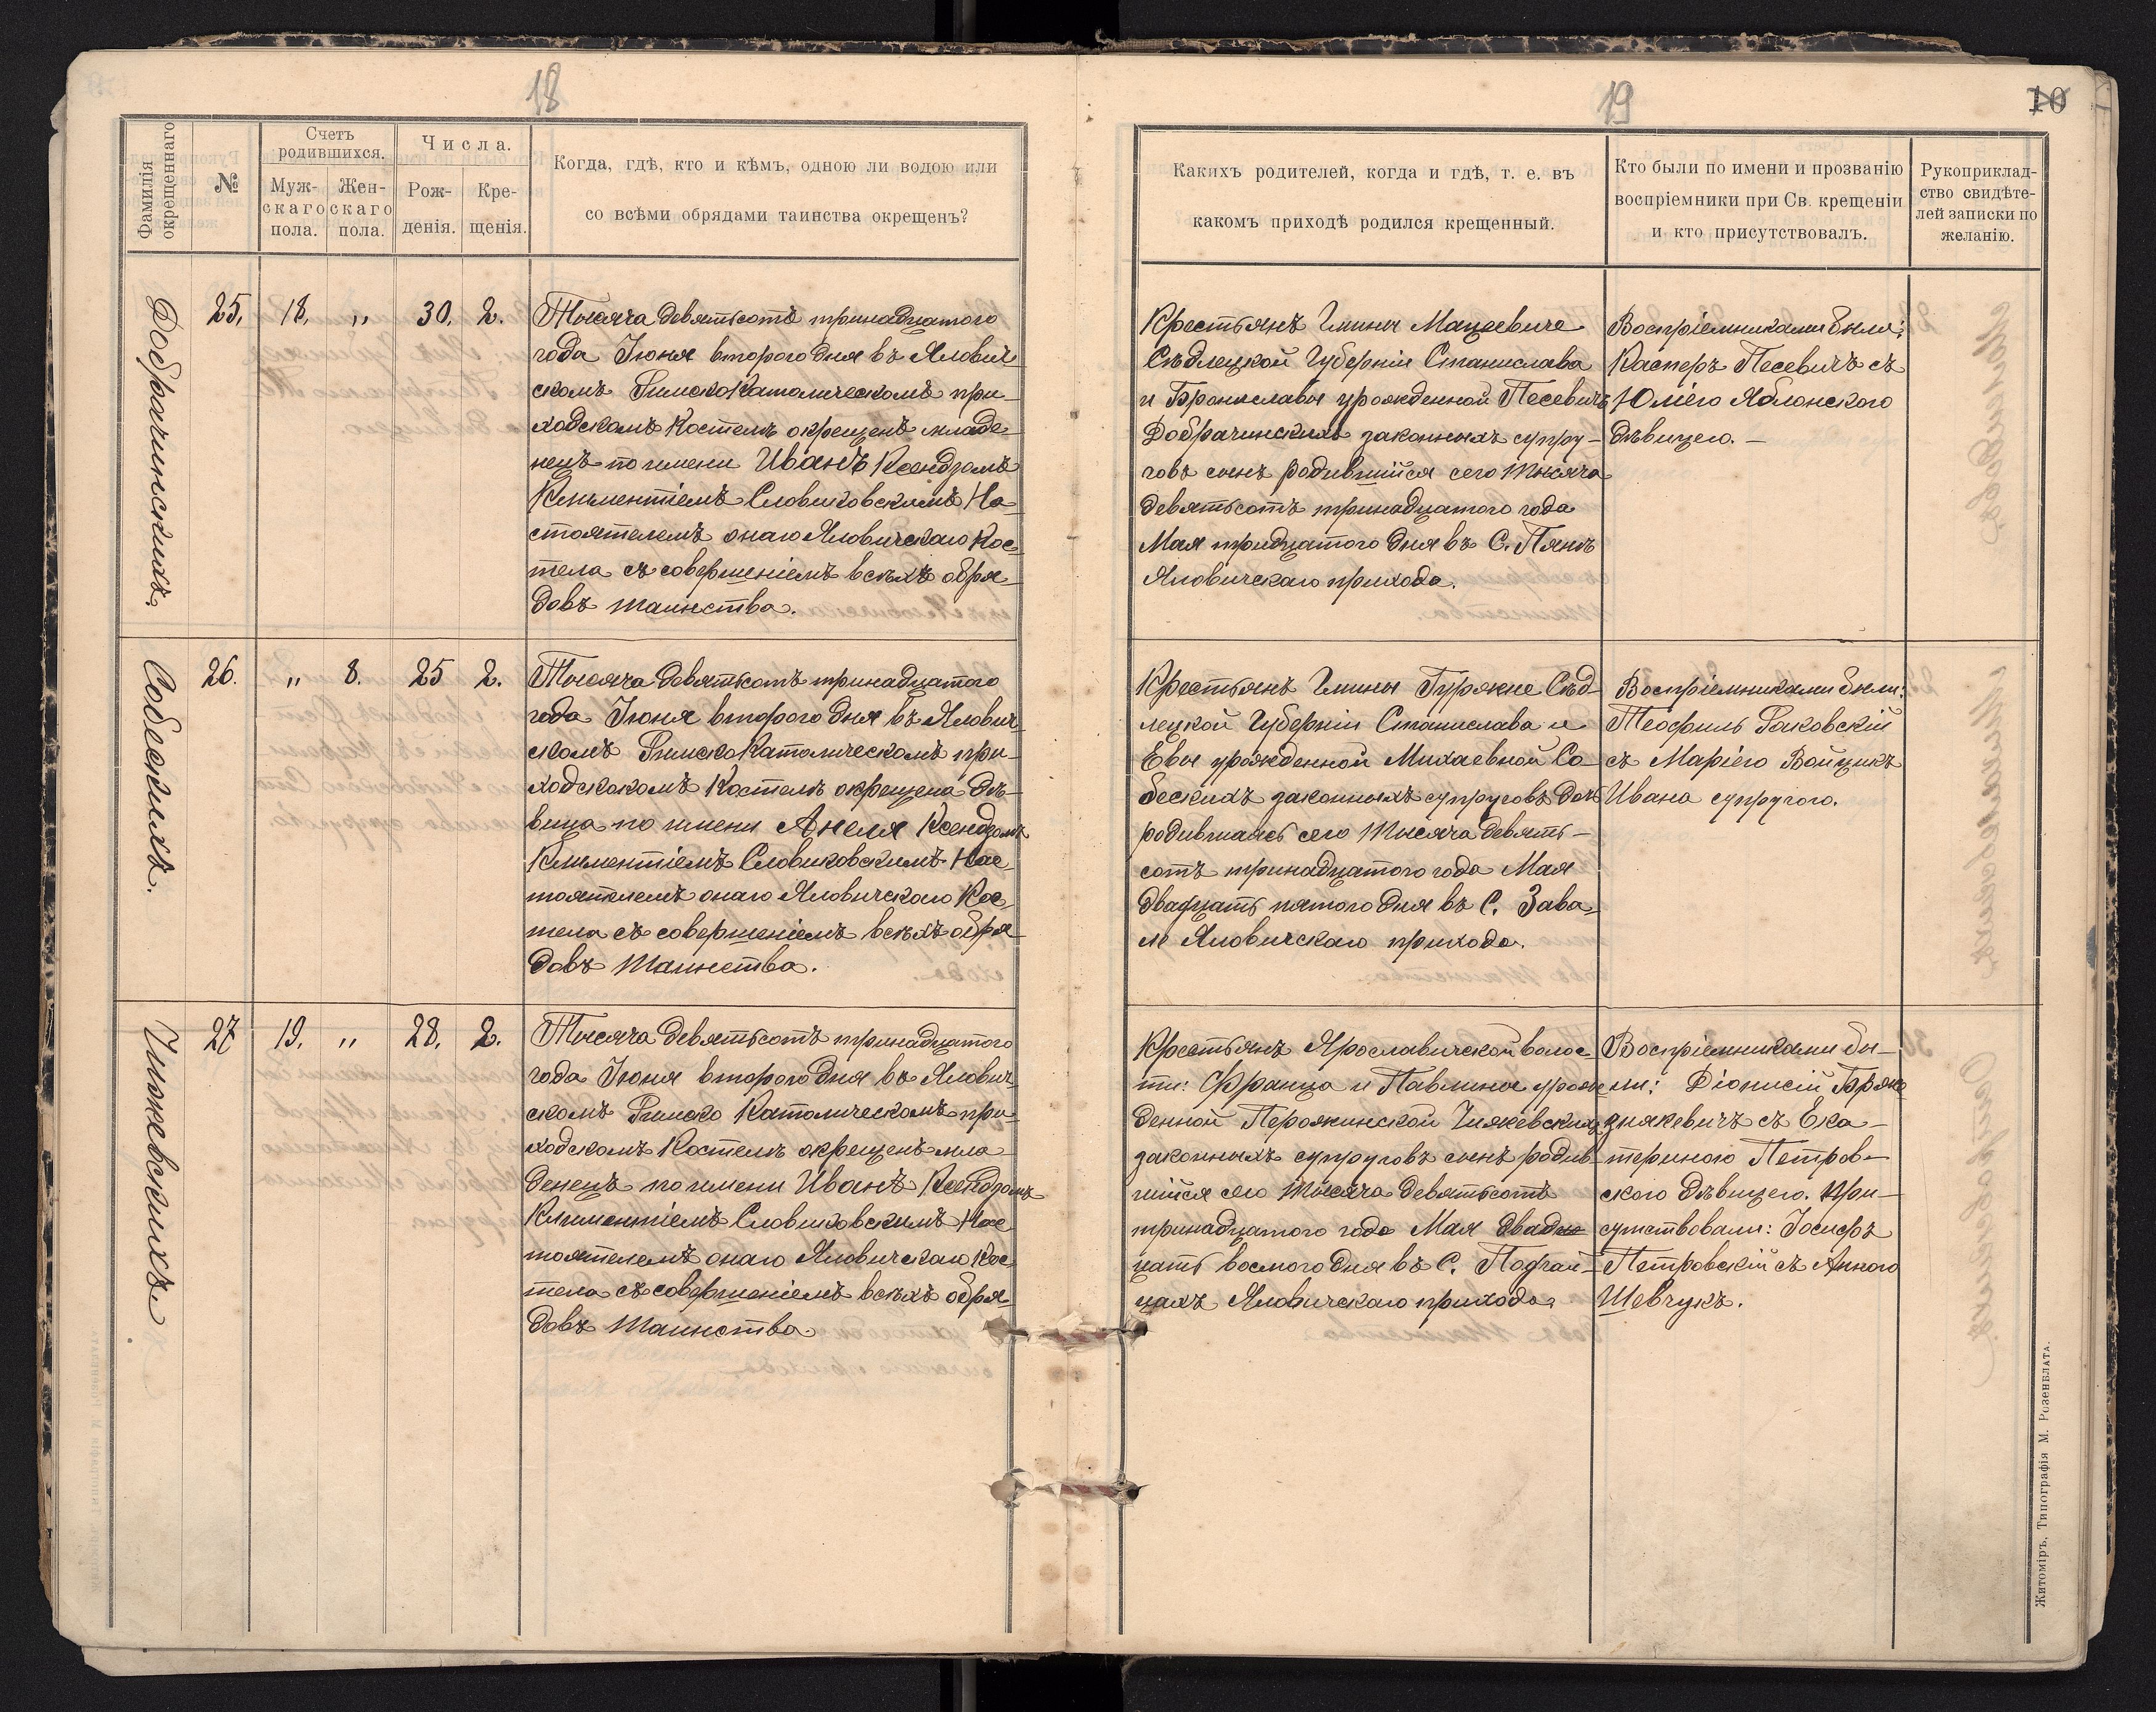 18
Фамилія
окрещеннаго
№
Счетъ
родившихся.
Муж-
скаго
пола.
Жен-
скаго
пола.
Числа.
Рож-
денія.
Кре-
щенія.
Когда, гдѣ, кто и кѣмъ, одною ли водою или
со всѣми обрядами таинства окрещенъ?
Добрачинскихъ.
25. 18. " 30. 2.
Тысяча девятьсотъ тринадцатого
года Іюня второго дня въ Ялович-
скомъ Римско Католическомъ при-
ходскомъ Костелѣ окрещенъ младе-
нецъ по имени Иванъ Ксендзомъ
Климентіемъ Словиковскимъ На-
стоятелемъ онаго Яловичскаго Кос-
тела съ совершеніемъ всѣхъ обря-
довъ таинства.
Собескихъ.
26. " 8. 25 2.
Тысяча девятьсотъ тринадцатого
года Іюня второго дня въ Янович-
скомъ Римско Католическомъ при-
ходскокомъ Костелѣ окрещена дѣ-
вица по имени Анеля Ксендзомъ
Климентіемъ Словиковскимъ Нас-
тоятелемъ онаго Яловичскаго Кос-
тела съ совершеніемъ всѣхъ обря-
довъ таинства.
Чижевскихъ
27 19. " 28. 2.
Тысяча девятьсотъ тринадцатого
года Іюня второго дня въ Янович-
скомъ Римско Католическомъ при-
ходскомъ Костелѣ окрещенъ мла-
денецъ по имени Иванъ Ксендзомъ
Климентіемъ Словиковскимъ Нас-
тоятелемъ онаго Яловичскаго Кос-
тела съ совершеніемъ всѣхъ обря-
довъ таинства.
19
10
Какихъ родителей, когда и гдѣ, т. е. въ
какомъ приходѣ родился крещенный.
Кто были по имени и прозванію
воспріемники при Св. крещеніи
и кто присутствовалъ.
Рукоприклад-
ство свидѣте-
лей записки по
желанію.
Крестьянъ Гмины Мацеевиче
Сѣдлецкой Губерніи Станислава
и Брониславы урожденной Песевичъ
Добрачинскихъ законныхъ супру-
говъ сынъ родившійся сего тысяча
девятьсотъ тринадцатого года
Мая тридцатого дня въ С. Пянѣ
Яловичскаго прихода.
Воспріемниками были:
Касперъ Песевичъ съ
Юліею Яблонскою
дѣвицею. —
Крестьянъ Гмины Сѣд-
лецкой Губерніи Станислава и
Евы урожденной Михаевной Со-
бескихъ законныхъ супруговъ дочь
родившаясь сего тысяча девять-
сотъ тринадцатого года Мая
двадцать пятого дня въ С. Зава-
ле Яловичскаго прихода.
Воспріемниками были:
Теофиль Раковскій
съ Маріею Войцикъ
Ивана супругою.
Крестьянъ Ярославичской волос-
ти: Франца и Павлины урож-
денной Перожинской Чижевскихъ
законныхъ супруговъ сынъ родив-
шійся сего тысяча девятьсотъ
тринадцатого года Мая двад-
цать восмого дня въ С. Подгай-
цахъ Яловичскаго прихода.
Воспріемниками бы-
ли: Діонисій
съ Ека-
териною Петров-
скою дѣвицею. При-
сутствовали: Іосифъ
Петровскій съ Анною
Шевчукъ.
Житоміръ, Типографія М. Розенблата.